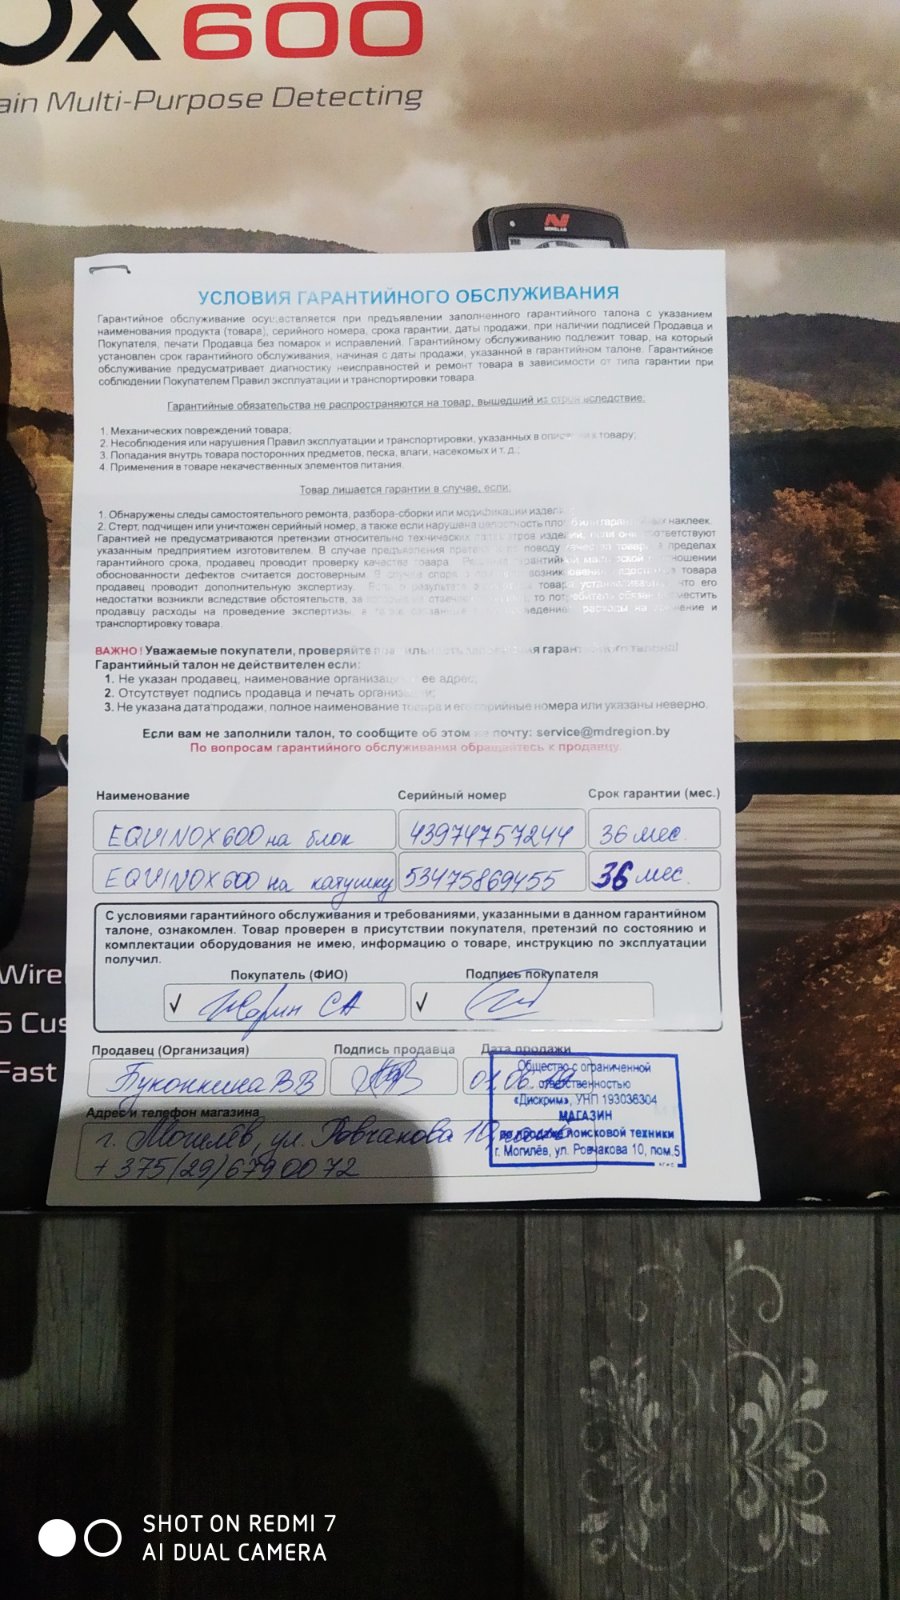 OX 600
ain Multi-Purpose Detecting
MINELAB
УСЛОВИЯ ГАРАНТИЙНОГО ОБСЛУЖИВАНИЯ
Гарантийное обслуживание осуществляется при предъявлении заполненного гарантийного талона с указанием
наименования продукта (товара), серийного номера, срока гарантии, даты продажи, при наличии подписей Продавца и
Покупателя, печати Продавца без помарок и исправлений. Гарантийному обслуживанию подлежит товар, на который
установлен срок гарантийного обслуживания, начиная с даты продажи, указанной в гарантийном талоне. Гарантийное
обслуживание предусматривает диагностику неисправностей и ремонт товара в зависимости от типа гарантии при
соблюдении Покупателем Правил эксплуатации и транспортировки товара.
Гарантийные обязательства не распространяются на товар, вышедший из строя вследствие:
1. Механических повреждений товара;
2. Несоблюдения или нарушения Правил эксплуатации и транспортировки, указанных в к товару;
3. Попадания внутрь товара посторонних предметов, песка, влаги, насекомых и т. д.;
4. Применения в товаре некачественных элементов питания.
Товар лишается гарантии в случае, если:
1. Обнаружены следы самостоятельного ремонта, разборка-сборки или модификации
2. Стерт, подчищен или уничтожен серийный номер, а также если нарушена целостность наклеек.
Гарантией не предусматриваются претензии относительно технических если они соответствуют
указанным предприятием изготовителем. В случае предъявления по поводу качества товара в пределах
гарантийного срока, продавец проводит проверку качества товара.
обоснованности дефектов считается достоверным. товара
продавец проводит дополнительную экспертизу. что его
недостатки возникли вследствие обстоятельств, за
продавцу расходы на проведение экспертизы, а расходы на и
транспортировку товара.
ВАЖНО! Уважаемые покупатели, проверяйте гарантийного талона!
Гарантийный талон не действителен если:
1. Не указан продавец, наименование организации ее адрес;
2. Отсутствует подпись продавца и печать организации;
3. Не указана дата продажи, полное наименование товара и его серийные номера или указаны неверно.
Если вам не заполнили талон, то сообщите об этом на почту: service@mdregion.by
По вопросам гарантийного обслуживания обращайтесь к продавцу.
Наименование Серийный номер Срок гарантии (мес.)
EQUINOX 600 на блок 43974757244 36 мес.
EQUINOX 600 на катушку 53475869455 36 мес.
С условиями гарантийного обслуживания и требованиями, указанными в данном гарантийном
талоне, ознакомлен. Товар проверен в присутствии покупателя, претензий по состоянию и
комплектации оборудования не имею, информацию о товаре, инструкцию по эксплуатации
получил.
Покупатель (ФИО) Подпись покупателя
СА
Продавец (Организация) Подпись продавца Дата продажи
ВВ 01.06.19
Адрес и телефон магазина
г. Могилёв, ул. Ровчакова 10,
+375(29)6790072
Общество с ограниченной
ответственностью
«Дискрим», УНП 193038304
МАГАЗИН
по продаже поисковой техники
г. Могилёв, ул. Ровчакова 10, пом.5
Wire
6 Cus
Fast
SHOT ON REDMI 7
AI DUAL CAMERA